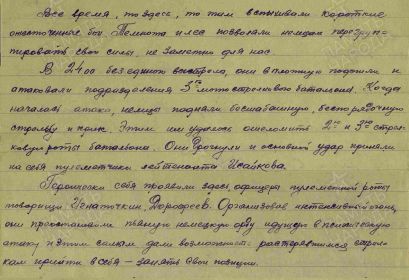 Все время, то здесь, то там вспыхивали короткие
ожесточенные бои. Темнота и лес позволяли немцам перегруп-
пировать свои силы, не заметно для нас.
В 24.00 без единого выстрела, они вплотную подошли и
атаковали подразделения 5го мотострелкового батальона. Когда
началась атака, немцы подняли бесшабашную, беспорядочную
стрельбу и крик. Этим им удалось ошеломить 2ую и 3ю стрел-
ковую роты батальона. Они дрогнули и основной удар приняли
на себя пулеметчики лейтенанта Исайкова.
Геройски себя проявили здесь офицеры пулеметной роты
товарищи Игнаточкин Дорофеев. Организовав интенсивный огонь,
они прижали пьяную немецкую орду идущую в психическую
атаку и этим самым дали возможность растерявшимся стрел-
кам прийти в себя - занять свои позиции.